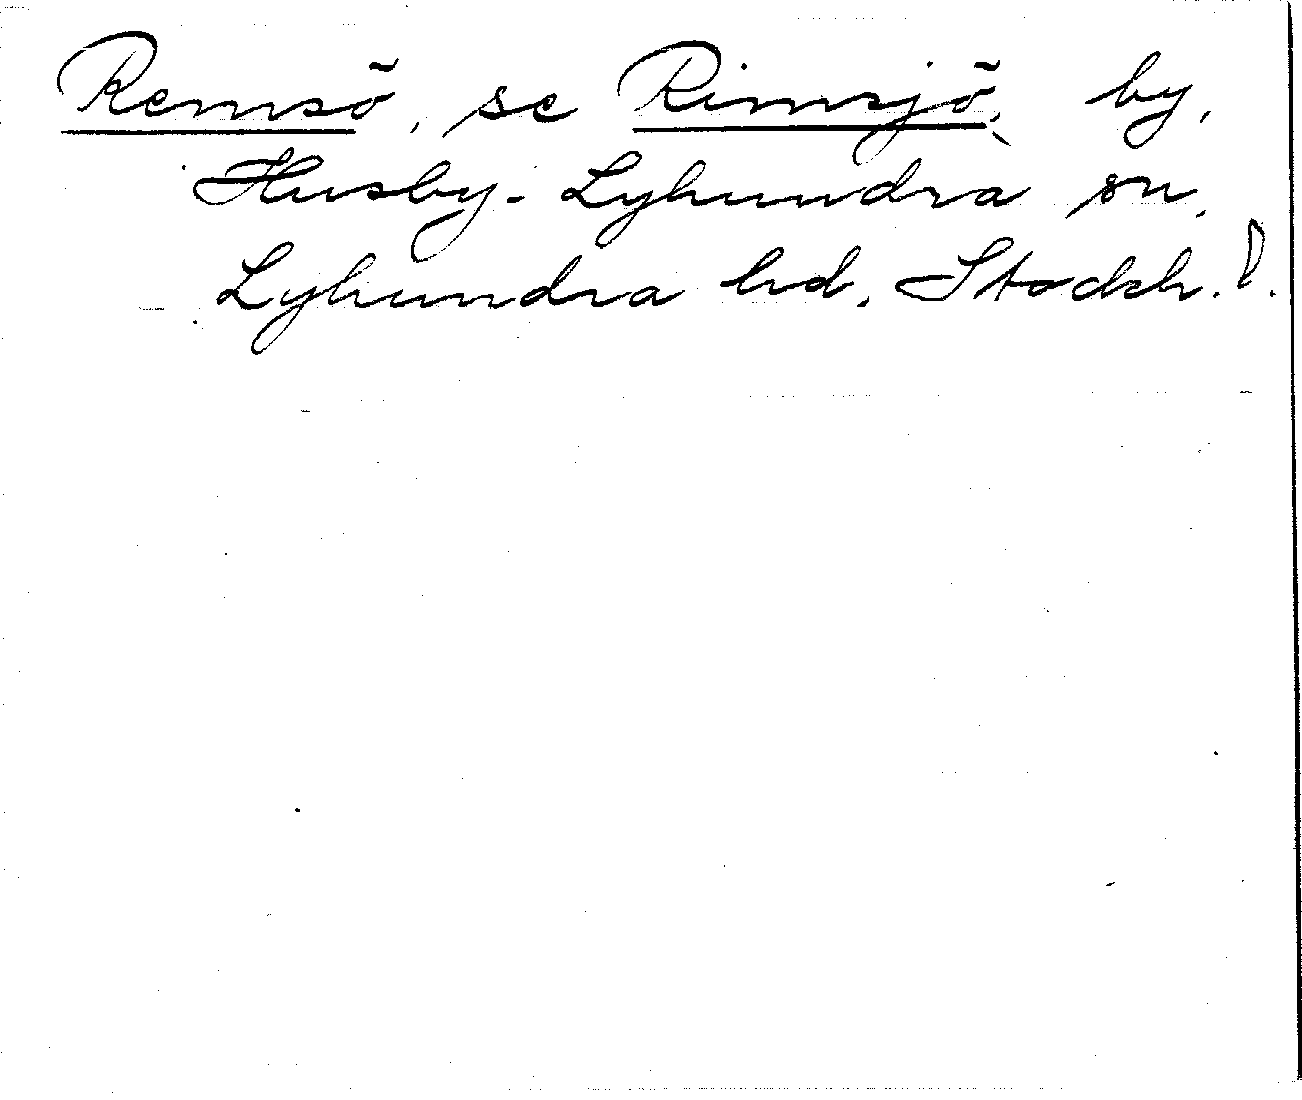 Remsö, se Rimsjö, by,
Husby-Lyhundra sn,
Lyhundra hd, Stockh. l.